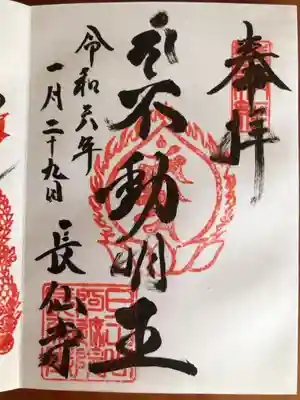 奉拝
不動明王
令和六年
一月二十九日
長仙寺